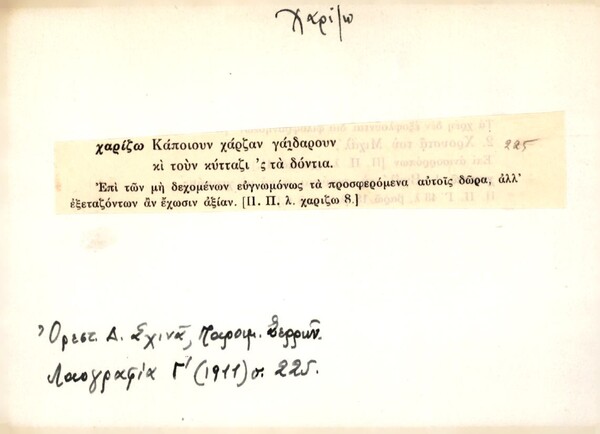 χαρίζω
χαρίζω Κάποιουν χάρζαν γάιδαρουν
225
κὶ τοὺν κύτταζι 'ς τὰ δόντια.
Ἐπὶ τῶν μὴ δεχομένων εὐγνωμόνως τὰ προσφερόμενα αὐτοῖς δῶρα, ἀλλ'
ἐξεταζόντων ἂν ἔχωσιν ἀξίαν. [Π. Π. λ. χαρίζω 8.]
Ὀρεστ. Δ. Σχινᾶ, Παροιμ. Σερρῶν.
Λαογραφία Γ' (1911) σ. 225.